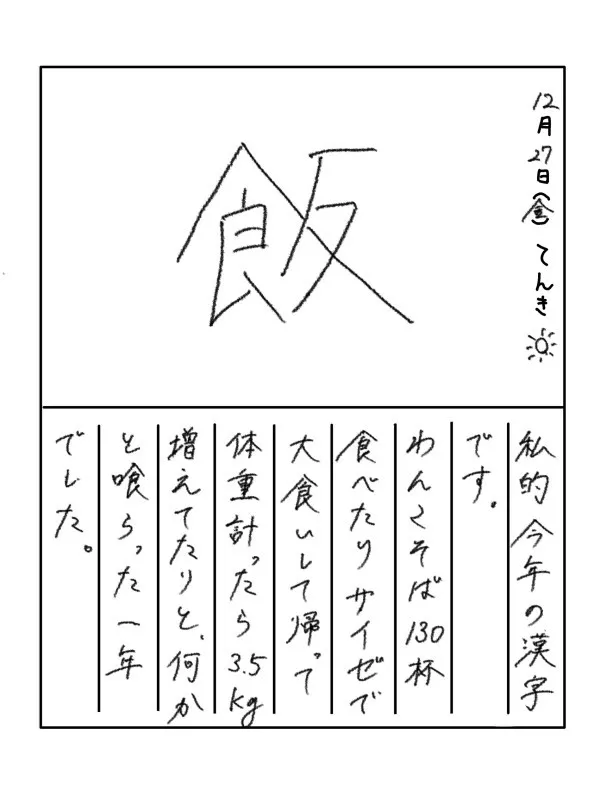 12月27日(金) てんき
飯
私的今年の漢字
です。
わんこそば130杯
食べたりサイゼで
大食いして帰って
体重計ったら3.5kg
増えてたりと、何か
と喰らった一年
でした。